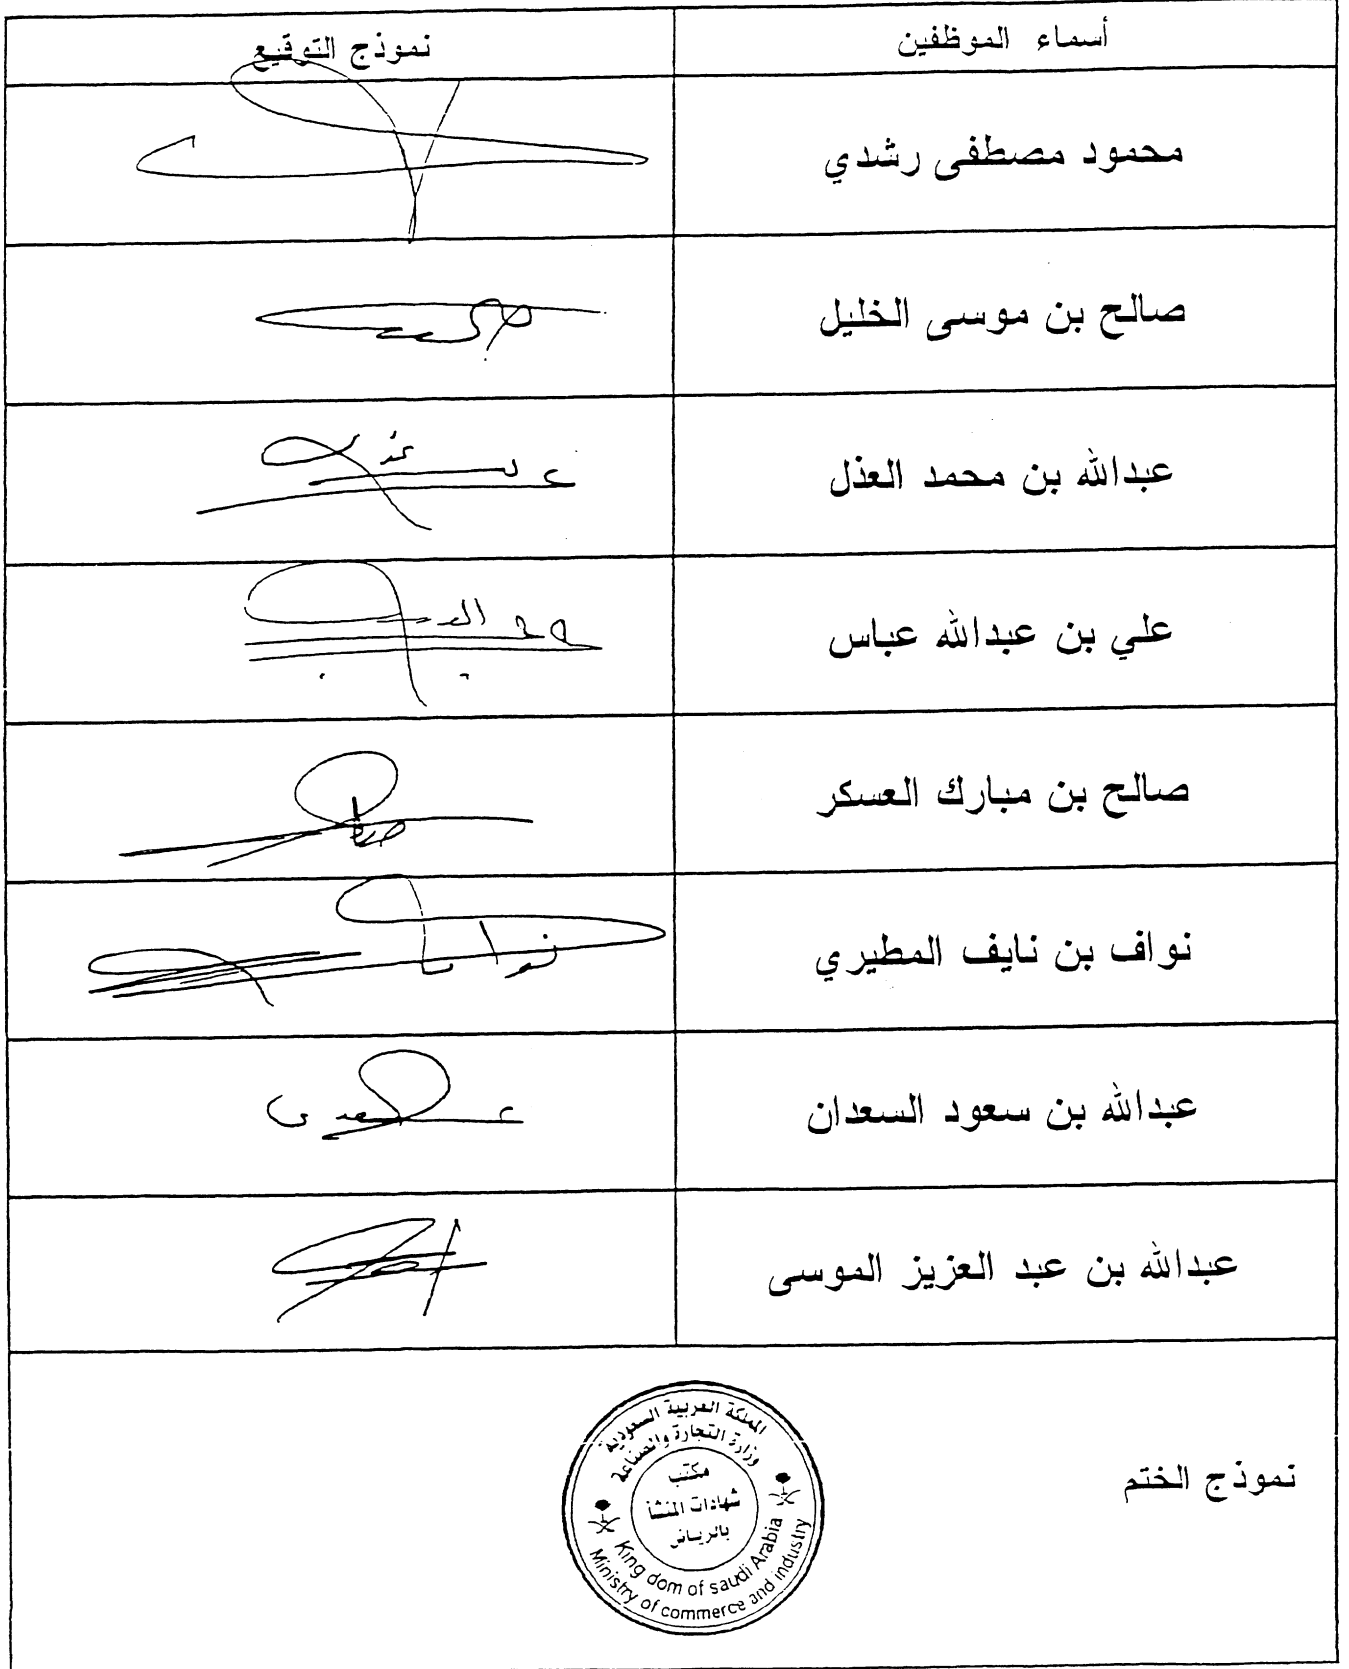 أسماء الموظفين
نموذج التوقيع
محمود مصطفى رشدي
صالح بن موسى الخليل
عبدالله بن محمد العذل
علي بن عبدالله عباس
صالح بن مبارك العسكر
نواف بن نايف المطيري
عبدالله بن سعود السعدان
عبدالله بن عبد العزيز الموسى
نموذج الختم
المملكة العربية السعودية
وزارة التجارة والصناعة
مكتب
شهادات المنشأ
بالرياض
King dom of saudi Arabia
Ministry of commerce and industry